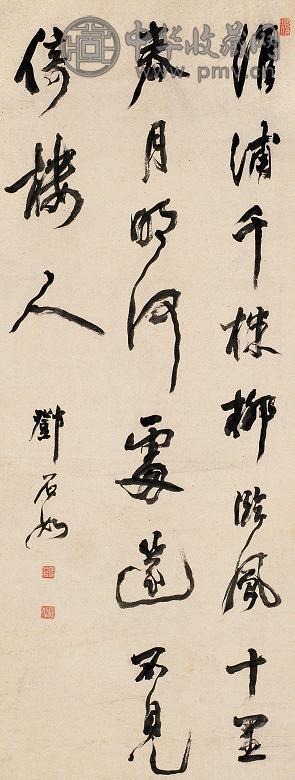 中华收藏网
www.pmv.cn
淮浦千株柳臨風十里
春月明何處篴不見
倚樓人
鄧石如